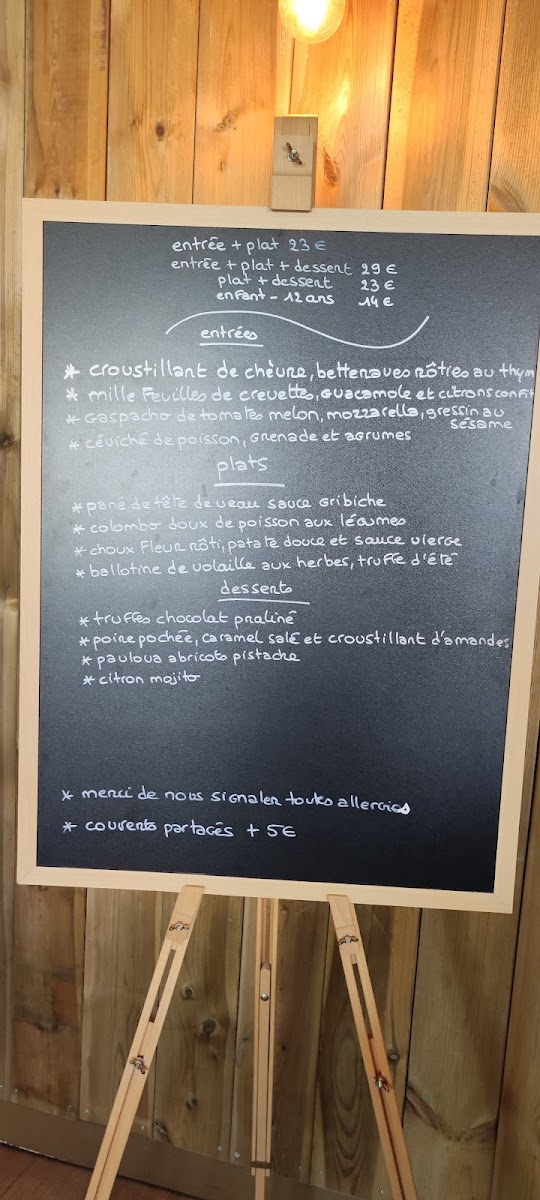 entrée + plat 23 €
entrée + plat + dessert 29 €
plat + dessert 23 €
enfant - 12 ans 14 €
entrées
* croustillant de chèvre, betteraves rôties au thym
* mille feuilles de crevettes, guacamole et citrons confit
* gaspacho de tomates melon, mozzarella, gressin au
sésame
* céviché de poisson, grenade et agrumes
plats
* pané de tête de veau sauce gribiche
* colombo doux de poisson aux légumes
* choux fleur rôti, patate douce et sauce vierge
* ballotine de volaille aux herbes, truffe d'été
desserts
* truffes chocolat praliné
* poire pochée, caramel salé et croustillant d'amandes
* pavlova abricots pistache
* citron mojito
* merci de nous signaler toutes allergies
* couverts partagés + 5€